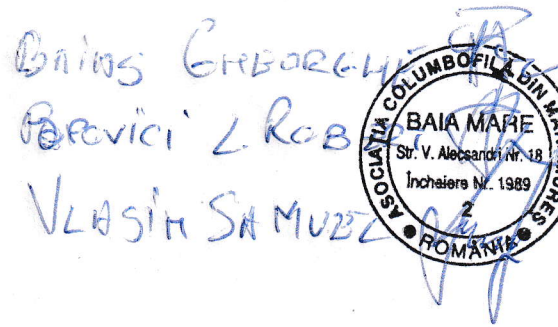 GHEORGHE
POPOVICI L ROB
VLASIN SAMUEL
ASOCIAȚIA COLUMBOFILĂ DIN MARAMUREȘ
BAIA MARE
Str. V. Alecsandri Nr. 18
Încheiere Nr. 1989
2
ROMÂNIA